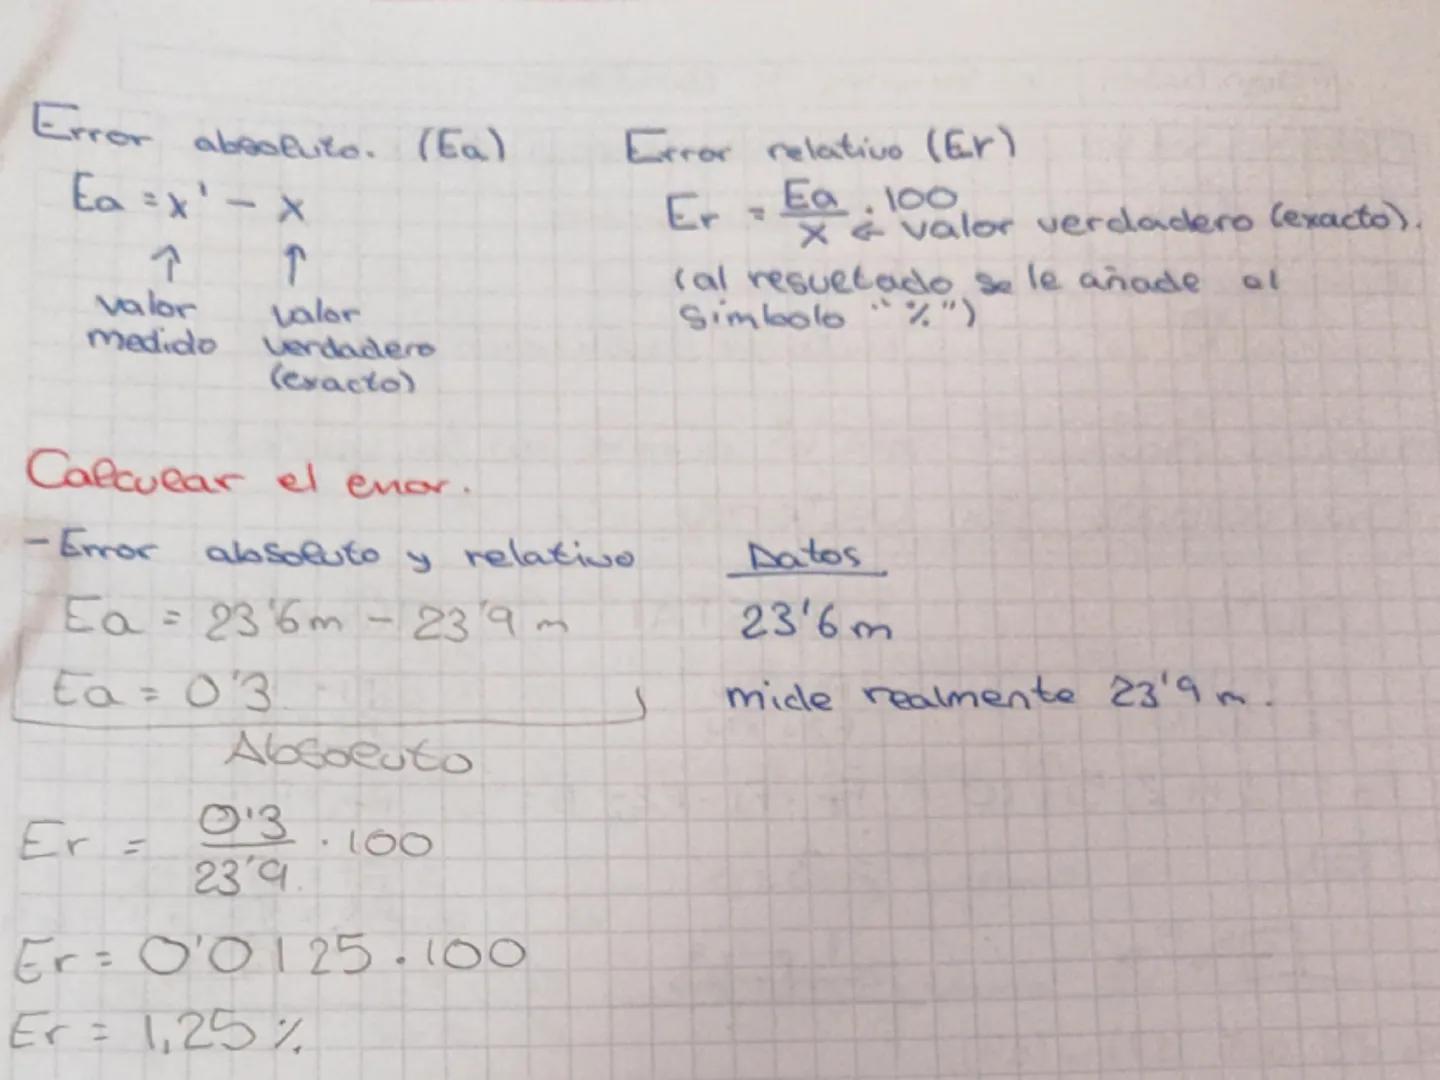 Error absoluto. (Ea)
Ea = x' - x
↑ ↑
valor valor
medido verdadero
(exacto)
Error relativo (Er)
Er = Ea/x · 100
← valor verdadero (exacto).
(al resueltado se le añade el
simbolo "%")
Calcular el error.
- Error absoluto y relativo
Ea = 23'6 m - 23'9 m
Ea = 0'3
Absoluto
Datos
23'6 m
mide realmente 23'9 m.
Er = 0'3/23'9. · 100
Er = 0'0125 · 100
Er = 1,25 %